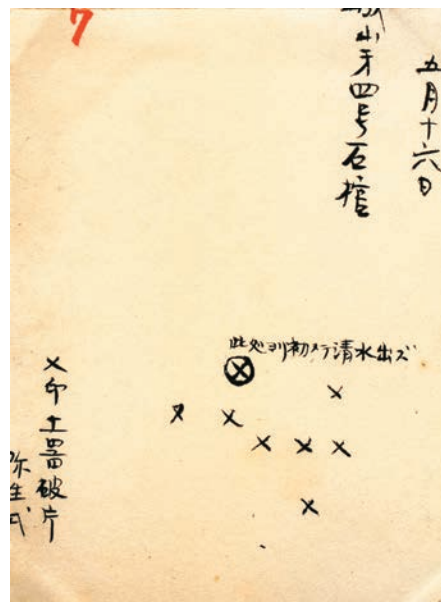 7
五月十六日
山才四号石棺
此処ヨリ初メテ清水出ズ
×印土器破片
弥生式